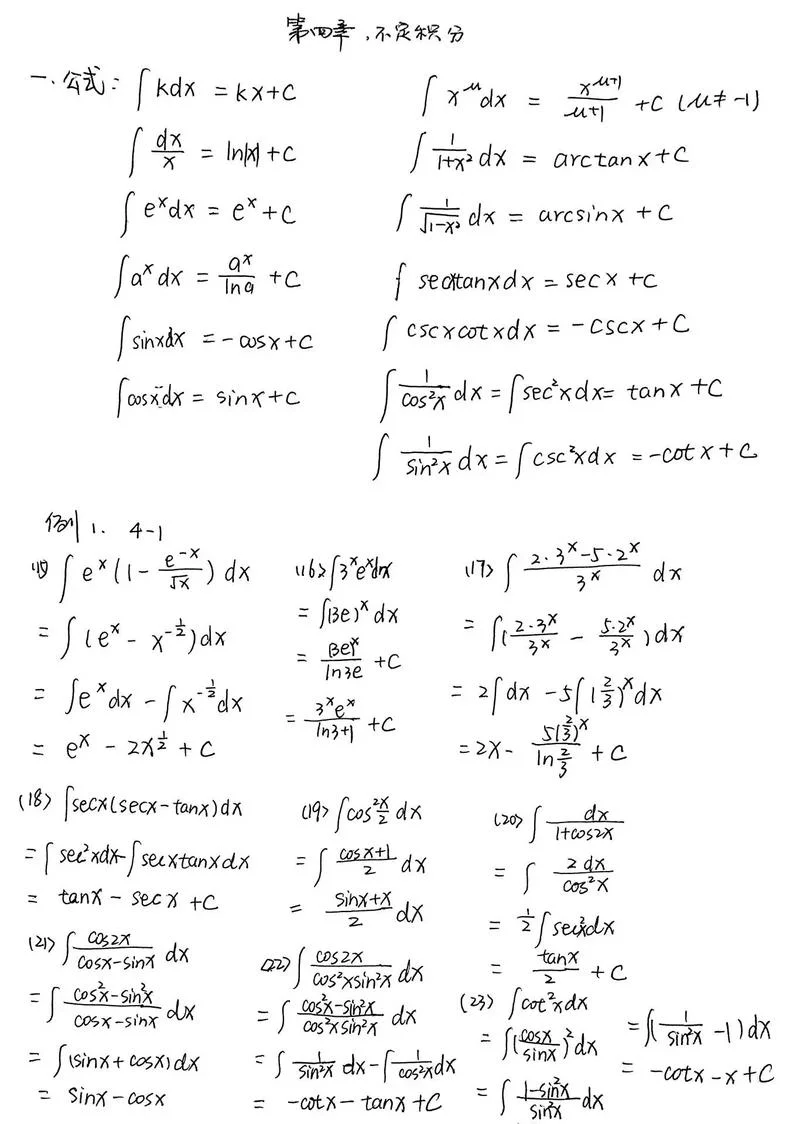 第四章.不定积分
一.公式: ∫kdx = kx+C
∫x^μ dx = x^(μ+1)/(μ+1) +C (μ≠-1)
∫dx/x = ln|x|+C
∫1/(1+x²) dx = arctanx+C
∫e^x dx = e^x+C
∫1/√(1-x²) dx = arcsinx+C
∫a^x dx = a^x/lna +C
∫secxtanxdx = secx+C
∫sinxdx = -cosx+C
∫cscxcotxdx = -cscx+C
∫cosxdx = sinx+C
∫1/cos²x dx = ∫sec²xdx= tanx+C
∫1/sin²x dx = ∫csc²xdx = -cotx+C
例1. 4-1
(15) ∫e^x(1- e^(-x)/√x) dx
= ∫(e^x - x^(-1/2))dx
= ∫e^x dx - ∫x^(-1/2)dx
= e^x - 2x^(1/2) + C
(16) ∫3^x e^x dx
= ∫(3e)^x dx
= (3e)^x/ln3e +C
= 3^x e^x/(ln3+1) +C
(17) ∫(2·3^x-5·2^x)/3^x dx
= ∫(2·3^x/3^x - 5·2^x/3^x)dx
= 2∫dx -5∫(2/3)^x dx
=2x- 5(2/3)^x/ln(2/3) +C
(18) ∫secx(secx-tanx)dx
=∫sec²xdx-∫secxtanxdx
= tanx - secx +C
(19) ∫cos²x/2 dx
= ∫(cosx+1)/2 dx
= (sinx+x)/2 dx
(20) ∫dx/(1+cos2x)
= ∫2dx/cos²x
= 1/2∫sec²xdx
= tanx/2 +C
(21) ∫cos2x/(cosx-sinx) dx
=∫(cos²x-sin²x)/(cosx-sinx) dx
= ∫(sinx+cosx)dx
= sinx-cosx
(22) ∫cos2x/(cos²xsin²x) dx
= ∫(cos²x-sin²x)/(cos²xsin²x) dx
= ∫1/sin²x dx-∫1/cos²x dx
= -cotx-tanx+C
(23) ∫cot²xdx
= ∫(cosx/sinx)²dx
= ∫(1-sin²x)/sin²x dx
=∫(1/sin²x -1)dx
= -cotx-x+C